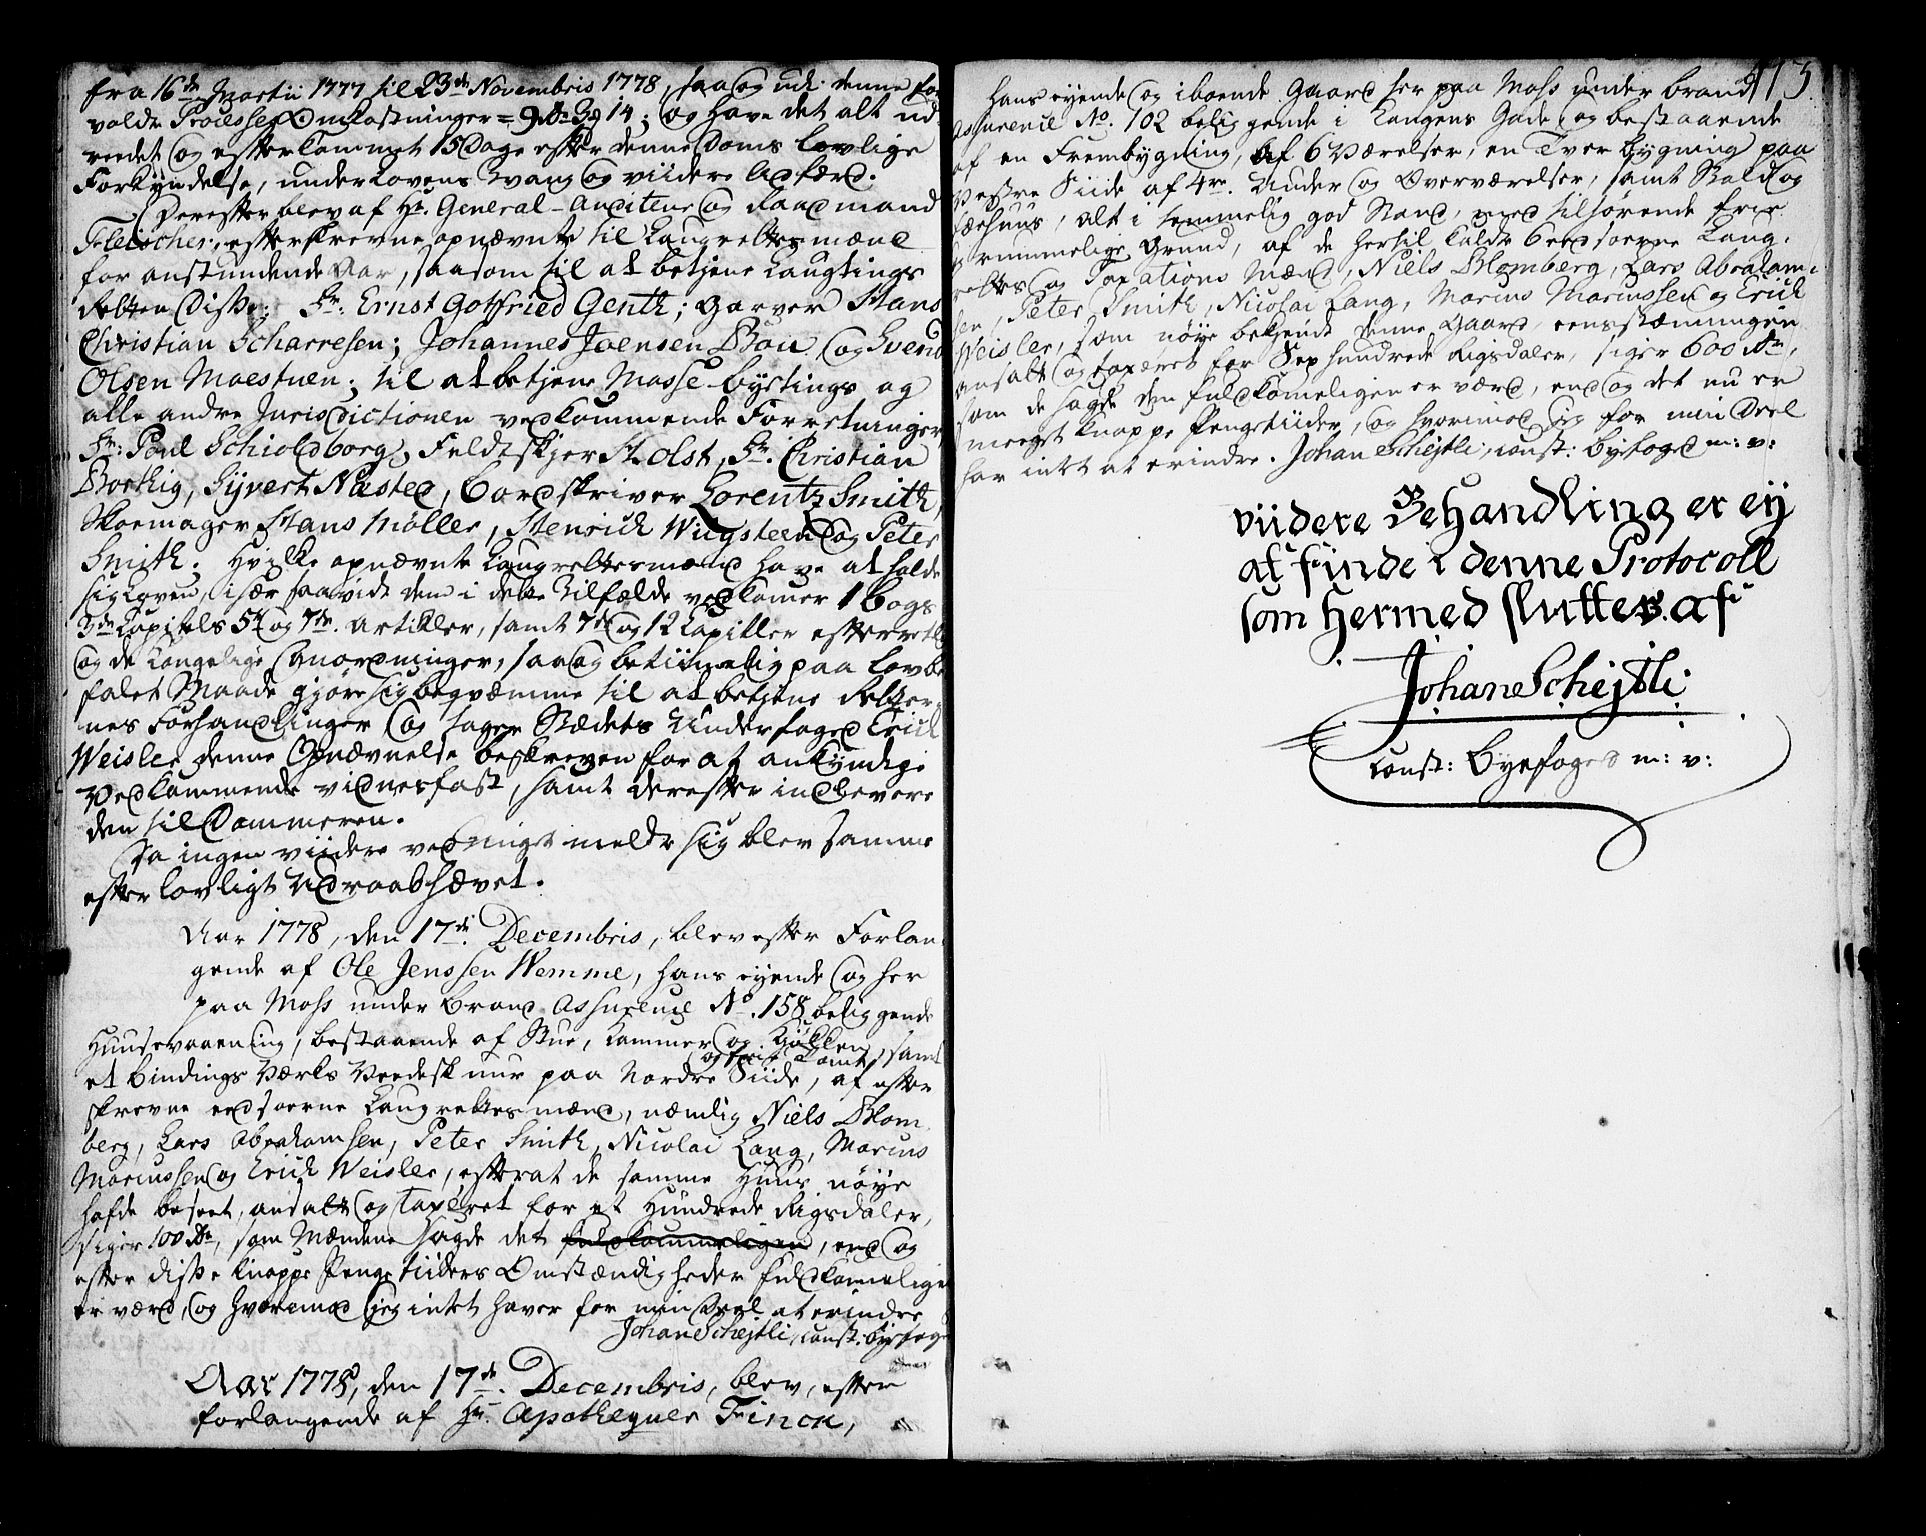 fra 16de Martii 1777 til 23de Novembris 1778, saa og ud: denne for
voldte Processes Omkostninger = 9 Rdr 3 14; og have det alt ud-
reedet og efterkommet 15 Dage efter denne Doms lovlige
Forkyndelse, under Lovens Tvang og viidere Adfærd.
Derefter blev af Hr. General-Auditeur og Raadmand
Fleischer, efterskrevne opnævnte til Laugrettesmænd
for anstundende Aar, saasom til at betjene Laugtings
Retten Disse: Sr. Ernst Gotfried Genth; Garver Hans
Christian Scharresen; Johannes Joensen Bou og Svend
Olsen Moestuen; til at betjene Mosse-byetings og
alle andre Jurisdictionen vedkommende Forretninger,
Sr: Poul Schioldborg, Feldtskjer Holst, Sr. Christian
Borthig, Sÿvert Næsted, Bordskriver Lorentz Smith,
Skoemager Hans Møller, Henrich Wugsteen og Peter
Smith. Hvilke opnævnte Laugrettesmænd have at holde
sig Loven, især saavidt dem i dette Tilfælde vedkomer 1 Bogs
3de Capitels 5te og 7de Artikler, samt 7de og 12 Capitler efterrettl.
og de Kongelige Anordninger, saa og betiimelig paa lovbe-
falet Maade gjøre sig beqvæmme til at betjene Retter-
nes Forhandlinger og tager Stædets Underfoged Erich
Weisler denne Opnævnelse beskreven for at ankyndige
Vedkommende vidnesfast, samt derefter indlevere
den til Dommeren.
Da ingen viidere ved Tinget meldte sig blev samme
efter lovligt Udraab hævet.
Aar 1778, den 17de Decembris, blev efter Forlan-
gende af Ole Jenssen Wemme, hans eyende og her
paa Moss under Brand Assurence No. 158 beliggende
Huusevaaening, bestaaende af Stue, Kammer og Kiøkken, samt
og frie Tomt
et Bindings Værks Veedeskuur paa Nordre Siide, af efter
skrevne eedsoerne Laugrettesmænd, næmlig Niels Blom-
berg, Lars Abrahamsen, Peter Smith, Nicolai Lang, Marcus
Marcussen og Erich Weisler, efterat de samme Huus nøye
hafde beseet, ansatt og Taxeret for et Hundrede Rigsdaler,
siger 100 Rdr, som Mændene sagde det fuldkommeligen, end og
efter disse knappe Penge tiiders Omstændigheder fuldkomeligen
er værd, og hvorimod jeg intet haver for min Deel at erindre
Johan Schejtli, const: byefoge
Aar 1778, den 17de Decembris, blev, efter
forlangende af Hr. Apothequer Finck,
173
hans eyende og iboende Gaard her paa Moss under brand
Assurence No. 102 beliggende i Kongens Gade, og bestaaende
af en Frembygning, af 6 Værelser, en Tverbygning paa
Vestre Siide af 4re Under og Overværelser, samt Stald og
Fæehuus, alt i temmelig god Stand, med tilhørende frie
rummelige Grund, af de hertil kaldte Eedsoerne Laug-
rettes og Taxations Mænd, Niels Blomberg, Lars Abraham-
sen, Peter Smith, Nicolai Lang, Marcus Marcussen og Erich
Weisler, som nøye bekjendt denne Gaard, eensstæmmingen
ansatt og taxeret for Sexhundrede Rigsdaler, siger 600 Rdr,
som de sagde den fuldkomeligen er værd, end og det nu er
meeget knappe Pengetiider, og hvorimod jeg for min Deel
har intet at erindre. Johan Schejtli, const: byfoged m: v:
viidere Behandling er ey
at finde i denne Protocoll
som Hermed sluttes. af
Johan Schejtli
const: Byefoged m: v: